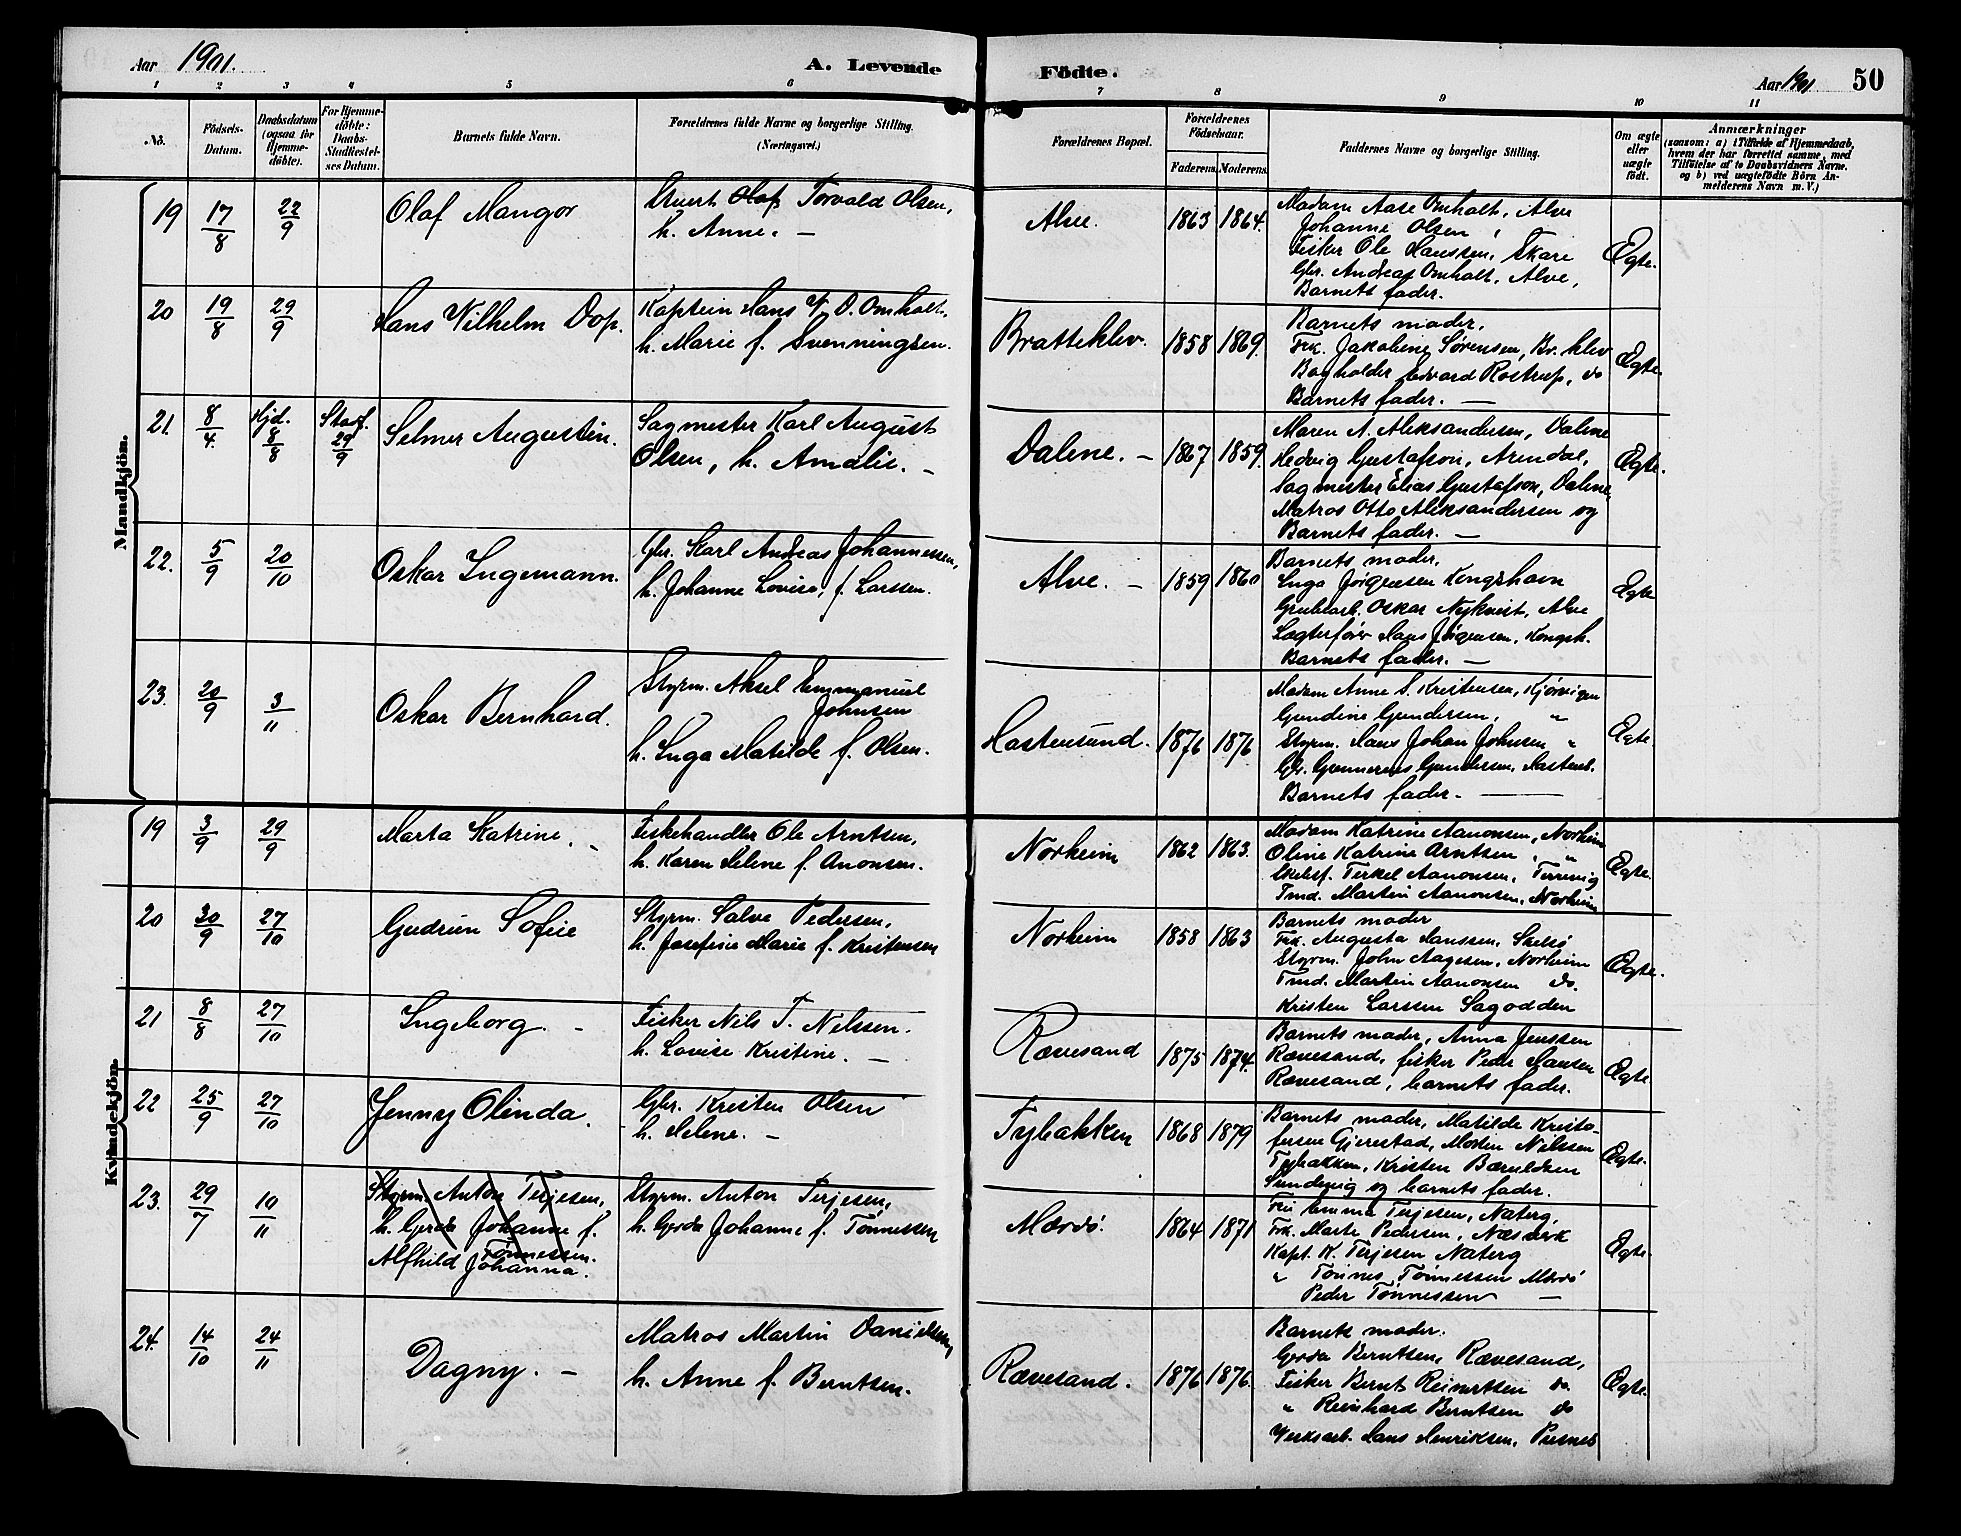 Aar 1901.
A. Levende
Födte.
Aar 1901
50
1 2 3 4 5 6 7 8 9 10 11
No.
Födsels-
Datum.
Daabsdatum
(ogsaa for
Hjemme-
döbte).
For Hjemme-
döbte:
Daabs-
Stadfestel-
ses Datum.
Barnets fulde Navn.
Forældrenes fulde Navne og borgerlige Stilling.
(Næringsvei.)
Forældrenes Bopæl.
Forældrenes
Födselsaar.
Faderens.
Moderens.
Faddernes Navne og borgerlige Stilling.
Om ægte
eller
uægte
födt.
Anmærkninger
(saasom: a) i Tilfælde af Hjemmedaab,
hvem der har forrettet samme, med
Tilföielse af to Daabsvidners Navne.
og b) ved uægtefödte Börn An-
melderens Navn m. V.)
Mandkjön.
19
17/8
22/9
Olaf Mangor
Olaf Torvald Olsen,
h. Anne. —
Alve.
1863
1864.
Madam Aase Omholt, Alve
Johanne Olsen
Fisker Ole Hanssen, Skare
Gbr. Andreas Omholt, Alve,
Barnets fader.
Ægte.
20
19/8
29/9
Hans Vilhelm Dop.
Kaptein Hans V. D. Omholt,
h. Marie f. Svenningsen.
Bratteklev.
1858
1869.
Barnets moder.
Frk. Jakobine Sørensen, Br. klev
Bogholder Edvard Rostrup, do
Barnets fader. —
Ægte.
21.
8/4.
Hjd.
8/8
Stadf.
29/9
Selmer Augustin.
Sagmester Karl August
Olsen, h. Amalie. —
Dalene. —
1867
1859.
Maren A. Aleksandersen, Dalene
Hedvig Gustafson, Arendal,
Sagmester Elias Gustafson, Dalene,
Matros Otto Aleksandersen og
Barnets fader. —
Ægte.
22.
5/9
20/10
Oskar Ingemann.
Gbr. Karl Andreas Johannessen,
h. Johanne Lovise, f. Larssen.
Alve. —
1859
1860
Barnets moder.
Inga Jørgensen Kongshavn
Grubearb. Oskar Nykvist, Alve
Lægterfører Hans Jørgensen, Kongsh.
Barnets fader. —
Ægte
23.
20/9
3/11
Oskar Bernhard.
Styrm. Aksel Emmanuel
Johnsen
h. Inga Matilde f. Olsen.
Hastensund.
1876
1876
Madam Anne S. Kristensen, Kjørvigen
Gundine Gundersen, "
Styrm. Hans Johan Johnsen "
Gbr. Gunnerius Gundersen, Hastens.
Barnets fader. —
Ægte.
Kvindekjön.
19
3/9
29/9
Marta Katrine. —
Fiskehandler Ole Arntsen,
h. Karen Helene f. Anonsen.
Norheim
1862
1863.
Madam Katrine Aanonsen, Norheim
Oline Katrine Arntsen, "
Terkel Aanonsen,
Tmd. Martin Aanonsen, Norheim
Ægte.
20
30/9
27/10
Gudrun Sofie
Styrm. Salve Pedersen,
h. Josefine Marie f. Kristensen
Norheim
1858
1863
Barnets moder
Frk. Augusta Hanssen,
Styrm. John Aagesen, Norheim
Tmd. Martin Aanonsen do.
Kristen Larssen Sagodden
Ægte.
21
8/8
27/10
Ingeborg. —
Fisker Nils T. Nilssen.
h. Lovise Kristine. —
Rævesand
1875
1874.
Barnets moder, Anna Jenssen
Rævesand, fisker Peder Hansen
Rævesand, barnets fader.
Ægte.
22
25/9
27/10
Jenny Olinda.
Gbr. Kristen Olsen
h. Helene. —
Tybakken
1868
1879
Barnets moder, Matilde Kristo-
fersen Gjerestad, Morten Nilssen
Tybakken, Kristen Bæruldsen
Sundevig og barnets fader.
Ægte.
23.
29/7
10/11
Styrm. Anton Terjesen,
h. Gerda Johanne f.
Tønnessen.
Alfhild Johanna.
Styrm. Anton Terjesen,
h. Gerda Johanne f. Tønnessen
Mærdø.
1864
1871
Fru Emma Terjesen, Naterg
Frk. Marte Pedersen, Næsverk
Kapt. K. Terjesen Naterg
" Tønnes Tønnessen Mærdø
Peder Tønnessen —
Ægte.
24.
14/10
24/11
Dagny. —
Matros Martin Danielsen,
h. Anne f. Berntsen.
Rævesand.
1876
1876.
Barnets moder.
Gerda Berntsen, Rævesand,
Fisker Bernt Reinertsen do.
" Reinhard Berntsen do
Verksarb. Hans Henriksen, Pusnes
Ægte.